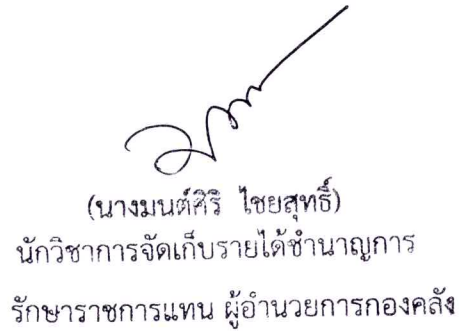 (นางมนต์ศิริ ไชยสุทธิ์)
นักวิชาการจัดเก็บรายได้ชำนาญการ
รักษาราชการแทน ผู้อำนวยการกองคลัง